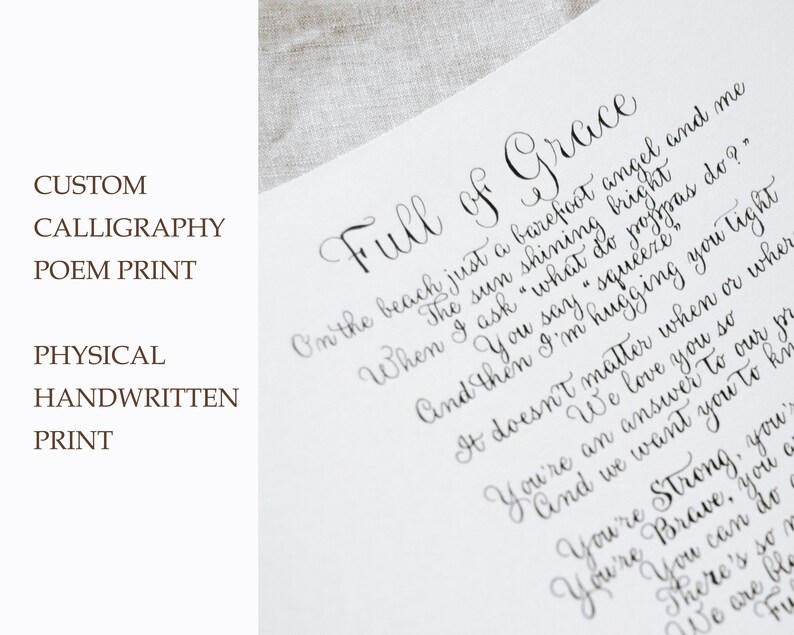 CUSTOM
CALLIGRAPHY
POEM PRINT
PHYSICAL
HANDWRITTEN
PRINT
Full of Grace
On the beach just a barefoot angel and me
The sun shining bright
When I ask "what do poppas do?"
You say "squeeze"
And then I'm hugging you tight
It doesn't matter when or
We love you so
You're an answer to our
And we want you to
You're Strong,
You're Brave, you
You can do
There's so
We are